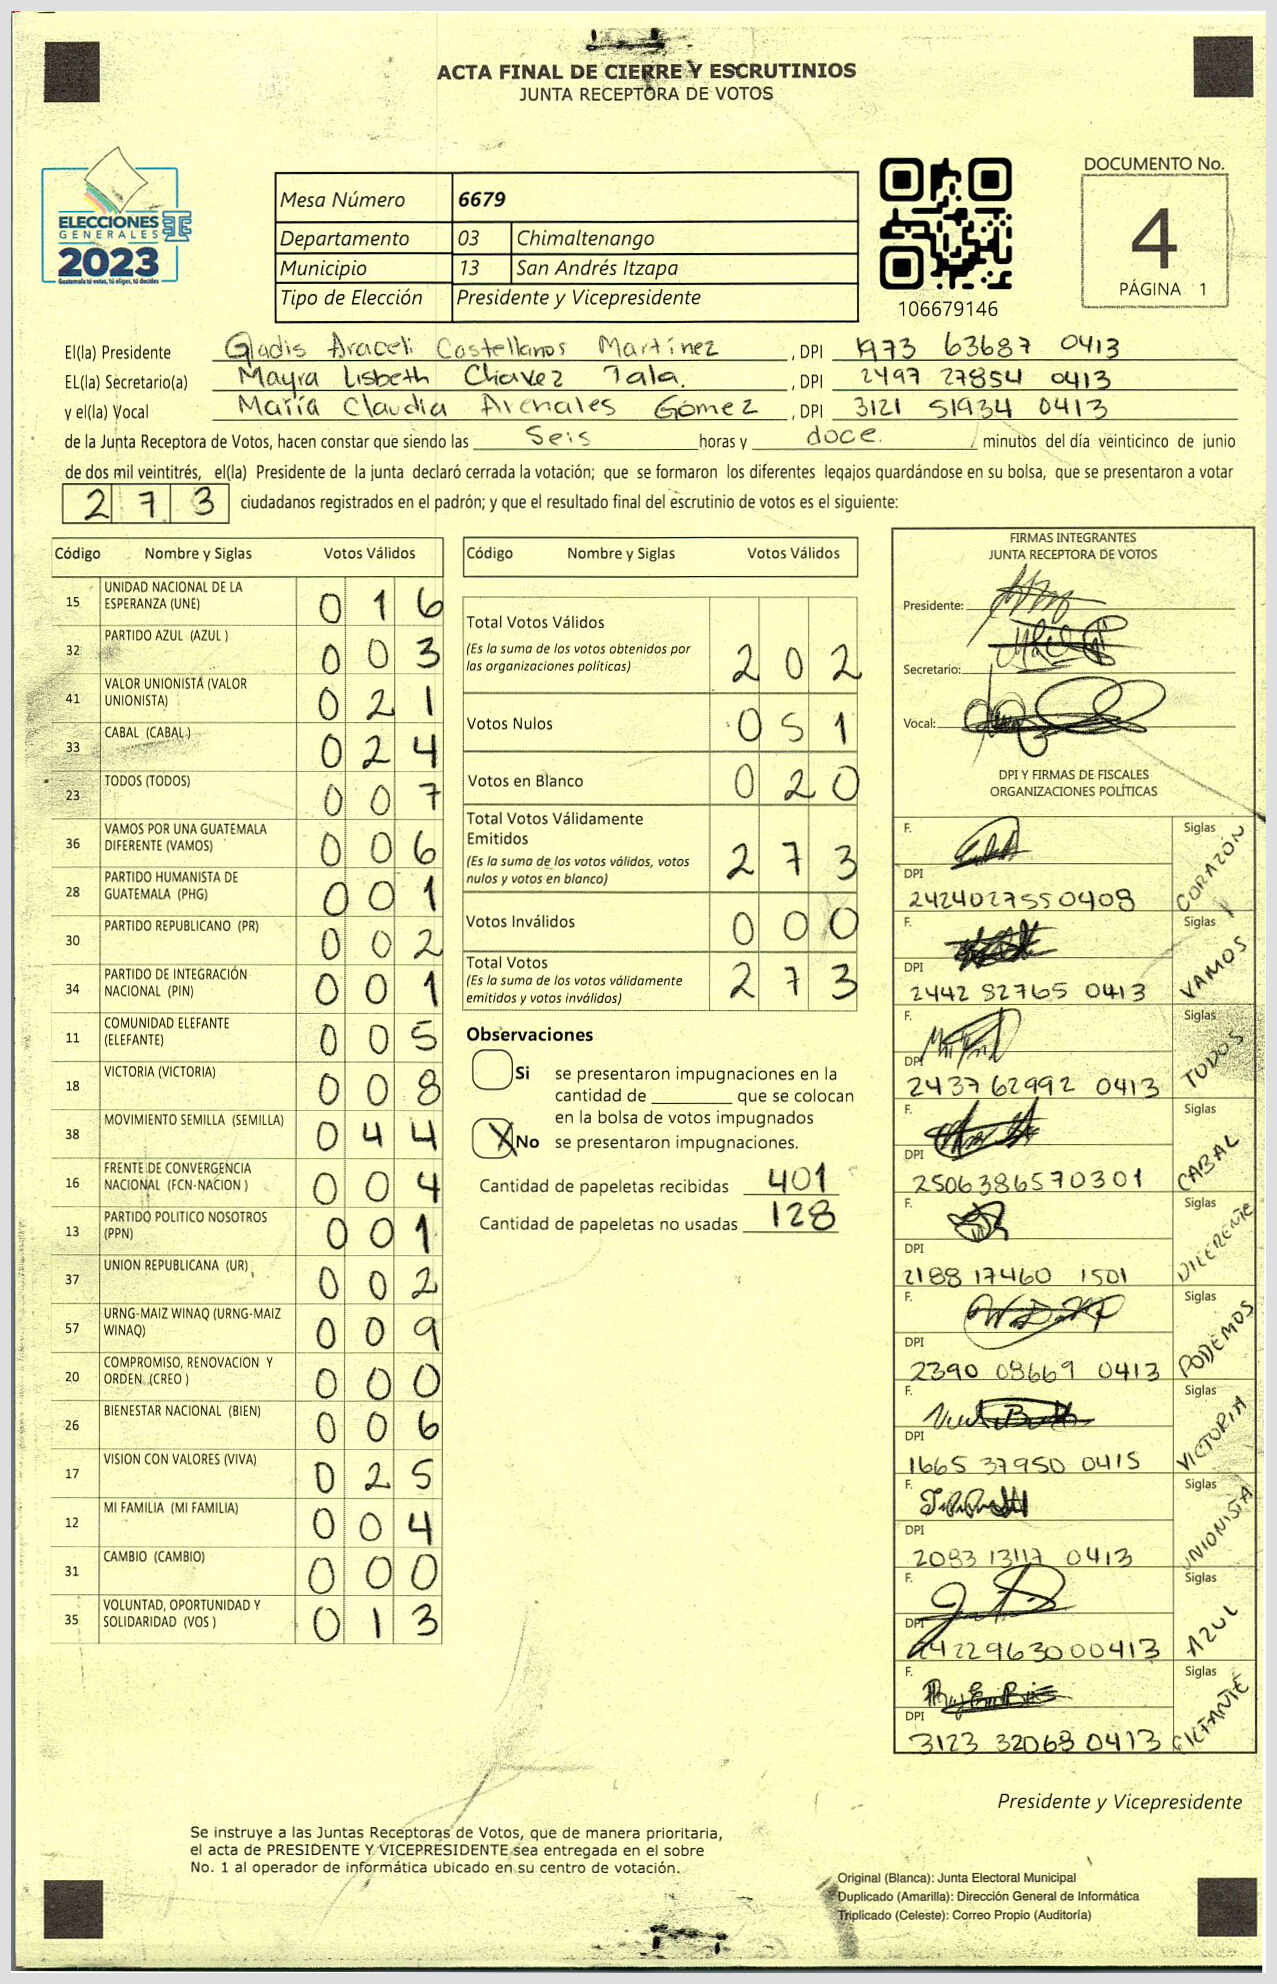 ACTA FINAL DE CIERRE Y ESCRUTINIOS
JUNTA RECEPTORA DE VOTOS
ELECCIONES
GENERALES
2023
Guatemala tú votas, tú eliges, tú decides
Mesa Número 6679
Departamento 03 Chimaltenango
Municipio 13 San Andrés Itzapa
Tipo de Elección Presidente y Vicepresidente
106679146
DOCUMENTO No.
4
PÁGINA 1
El(la) Presidente Gladis Araceli Castellanos Martínez , DPI 1973 63687 0413
EL(la) Secretario(a) Mayra Lisbeth Chavez Tala. , DPI 2497 27854 0413
y el(la) Vocal María Claudia Arenales Gómez , DPI 3121 51934 0413
de la Junta Receptora de Votos, hacen constar que siendo las Seis horas y doce. minutos del día veinticinco de junio
de dos mil veintitrés, el(la) Presidente de la junta declaró cerrada la votación; que se formaron los diferentes legajos quardándose en su bolsa, que se presentaron a votar
273 ciudadanos registrados en el padrón; y que el resultado final del escrutinio de votos es el siguiente:
Código Nombre y Siglas Votos Válidos
15 UNIDAD NACIONAL DE LA ESPERANZA (UNE) 0 1 6
32 PARTIDO AZUL (AZUL ) 0 0 3
41 VALOR UNIONISTA (VALOR UNIONISTA) 0 2 1
33 CABAL (CABAL ) 0 2 4
23 TODOS (TODOS) 0 0 7
36 VAMOS POR UNA GUATEMALA DIFERENTE (VAMOS) 0 0 6
28 PARTIDO HUMANISTA DE GUATEMALA (PHG) 0 0 1
30 PARTIDO REPUBLICANO (PR) 0 0 2
34 PARTIDO DE INTEGRACIÓN NACIONAL (PIN) 0 0 1
11 COMUNIDAD ELEFANTE (ELEFANTE) 0 0 5
18 VICTORIA (VICTORIA) 0 0 8
38 MOVIMIENTO SEMILLA (SEMILLA) 0 4 4
16 FRENTE DE CONVERGENCIA NACIONAL (FCN-NACION ) 0 0 4
13 PARTIDO POLITICO NOSOTROS (PPN) 0 0 1
37 UNION REPUBLICANA (UR) 0 0 2
57 URNG-MAIZ WINAQ (URNG-MAIZ WINAQ) 0 0 9
20 COMPROMISO, RENOVACION Y ORDEN (CREO ) 0 0 0
26 BIENESTAR NACIONAL (BIEN) 0 0 6
17 VISION CON VALORES (VIVA) 0 2 5
12 MI FAMILIA (MI FAMILIA) 0 0 4
31 CAMBIO (CAMBIO) 0 0 0
35 VOLUNTAD, OPORTUNIDAD Y SOLIDARIDAD (VOS ) 0 1 3
Código Nombre y Siglas Votos Válidos
Total Votos Válidos
(Es la suma de los votos obtenidos por
las organizaciones políticas) 2 0 2
Votos Nulos 0 5 1
Votos en Blanco 0 2 0
Total Votos Válidamente
Emitidos
(Es la suma de los votos válidos, votos
nulos y votos en blanco) 2 7 3
Votos Inválidos 0 0 0
Total Votos
(Es la suma de los votos válidamente
emitidos y votos inválidos) 2 7 3
Observaciones
Si se presentaron impugnaciones en la
cantidad de ________ que se colocan
en la bolsa de votos impugnados
X No se presentaron impugnaciones.
Cantidad de papeletas recibidas 401
Cantidad de papeletas no usadas 128
FIRMAS INTEGRANTES
JUNTA RECEPTORA DE VOTOS
Presidente:
Secretario:
Vocal:
DPI Y FIRMAS DE FISCALES
ORGANIZACIONES POLÍTICAS
F. Siglas CORAZÓN
DPI
2424027550408
F. Siglas VAMOS
DPI
2442 82765 0413
F. Siglas TODOS
DPI
2437 62992 0413
F. Siglas CABAL
DPI
2506386570301
F. Siglas
DPI
2188 17460 1501
F. Siglas PODEMOS
DPI
2390 08669 0413
F. Siglas VICTORIA
DPI
1665 37950 0415
F. Siglas UNIONISTA
DPI
2083 13117 0413
F. Siglas AZUL
DPI
2422963000413
F. Siglas
DPI
3123 32068 0413
Presidente y Vicepresidente
Se instruye a las Juntas Receptoras de Votos, que de manera prioritaria,
el acta de PRESIDENTE Y VICEPRESIDENTE sea entregada en el sobre
No. 1 al operador de informática ubicado en su centro de votación.
Original (Blanca): Junta Electoral Municipal
Duplicado (Amarilla): Dirección General de Informática
Triplicado (Celeste): Correo Propio (Auditoría)